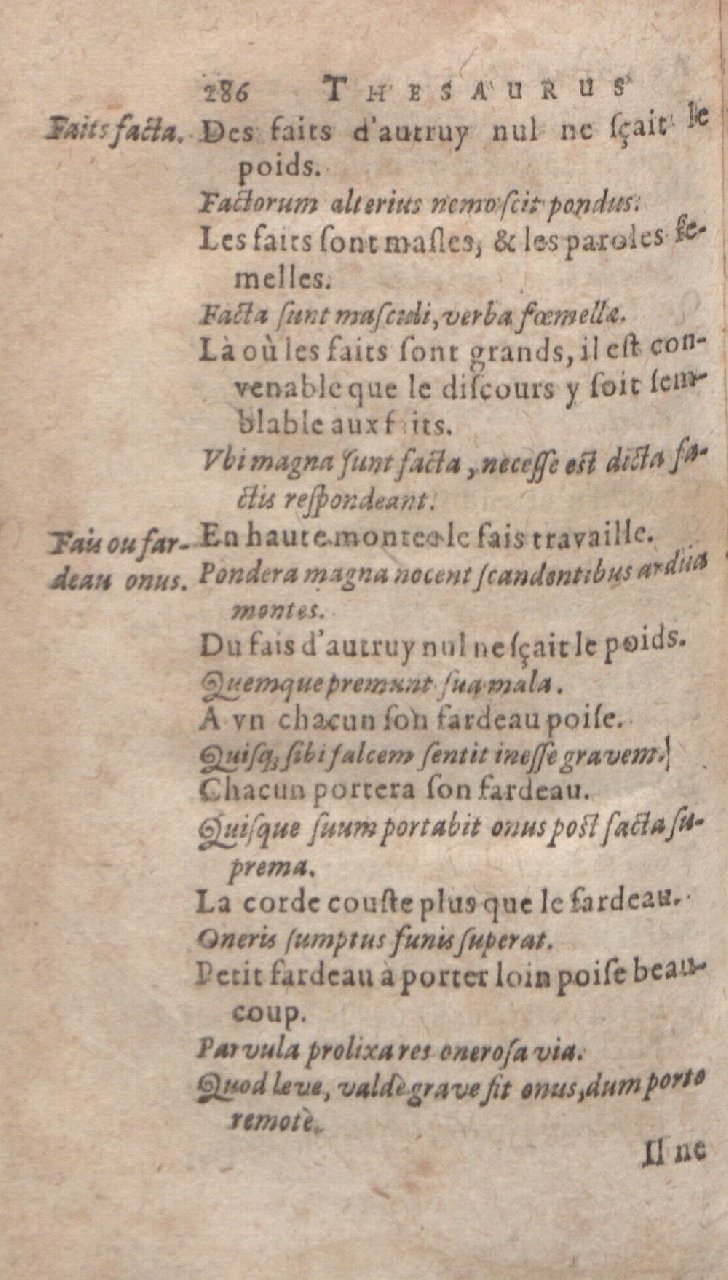 286 THESAURUS
Faits facta. Des faits d'autruy nul ne sçait le
poids.
Factorum alterius nemo scit pondus.
Les faits ſont maſles, & les paroles fe-
melles.
Facta ſunt maſculi, verba fœmellæ.
Là où les faits ſont grands, il eſt con-
venable que le diſcours y ſoit ſem-
blable aux faits.
Vbi magna ſunt facta, neceſſe est dicta fa-
ctis reſpondeant.
Fais ou far- En haute montee le fais travaille.
deau onus. Pondera magna nocent ſcandentibus ardua
montes.
Du fais d'autruy nul ne ſçait le poids.
Quemque premunt ſua mala.
A vn chacun ſon fardeau poiſe.
Quiſq; ſibi falcem ſentit ineſſe gravem.
Chacun portera ſon fardeau.
Quiſque ſuum portabit onus poſt facta ſu-
prema.
La corde couſte plus que le fardeau.
Oneris ſumptus funis ſuperat.
Petit fardeau à porter loin poiſe beau-
coup.
Parvula prolixa res oneroſa via.
Quod leve, valdè grave fit onus, dum porto
remotè.
Il ne